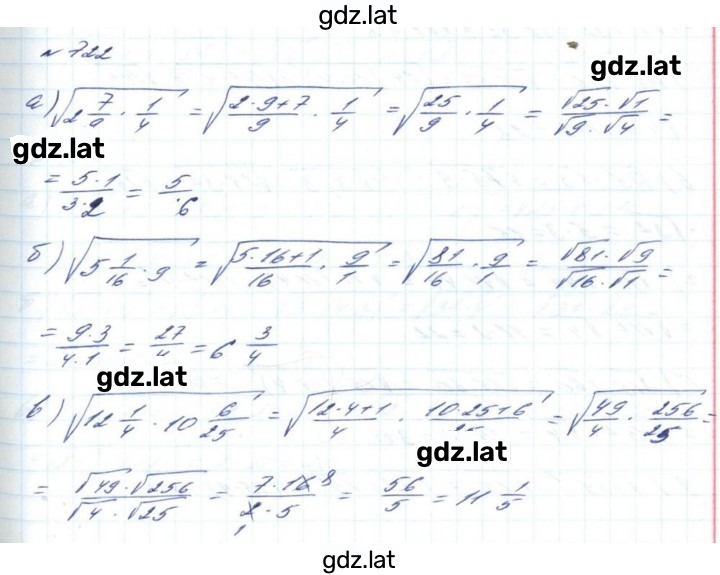 gdz.lat
№ 722
gdz.lat
а) √(2 7/9 · 1/4) = √((2·9+7)/9 · 1/4) = √(25/9 · 1/4) = (√25 · √1)/(√9 · √4) =
gdz.lat
= (5·1)/(3·2) = 5/6
б) √(5 1/16 · 9) = √((5·16+1)/16 · 9/1) = √(81/16 · 9/1) = (√81 · √9)/(√16 · √1) =
= (9·3)/(4·1) = 27/4 = 6 3/4
gdz.lat
в) √(12 1/4 · 10 6/25) = √((12·4+1)/4 · (10·25+6)/25) = √(49/4 · 256/25) =
gdz.lat
= (√49 · √256)/(√4 · √25) = (7·16 8)/(2·5 1) = 56/5 = 11 1/5
gdz.lat